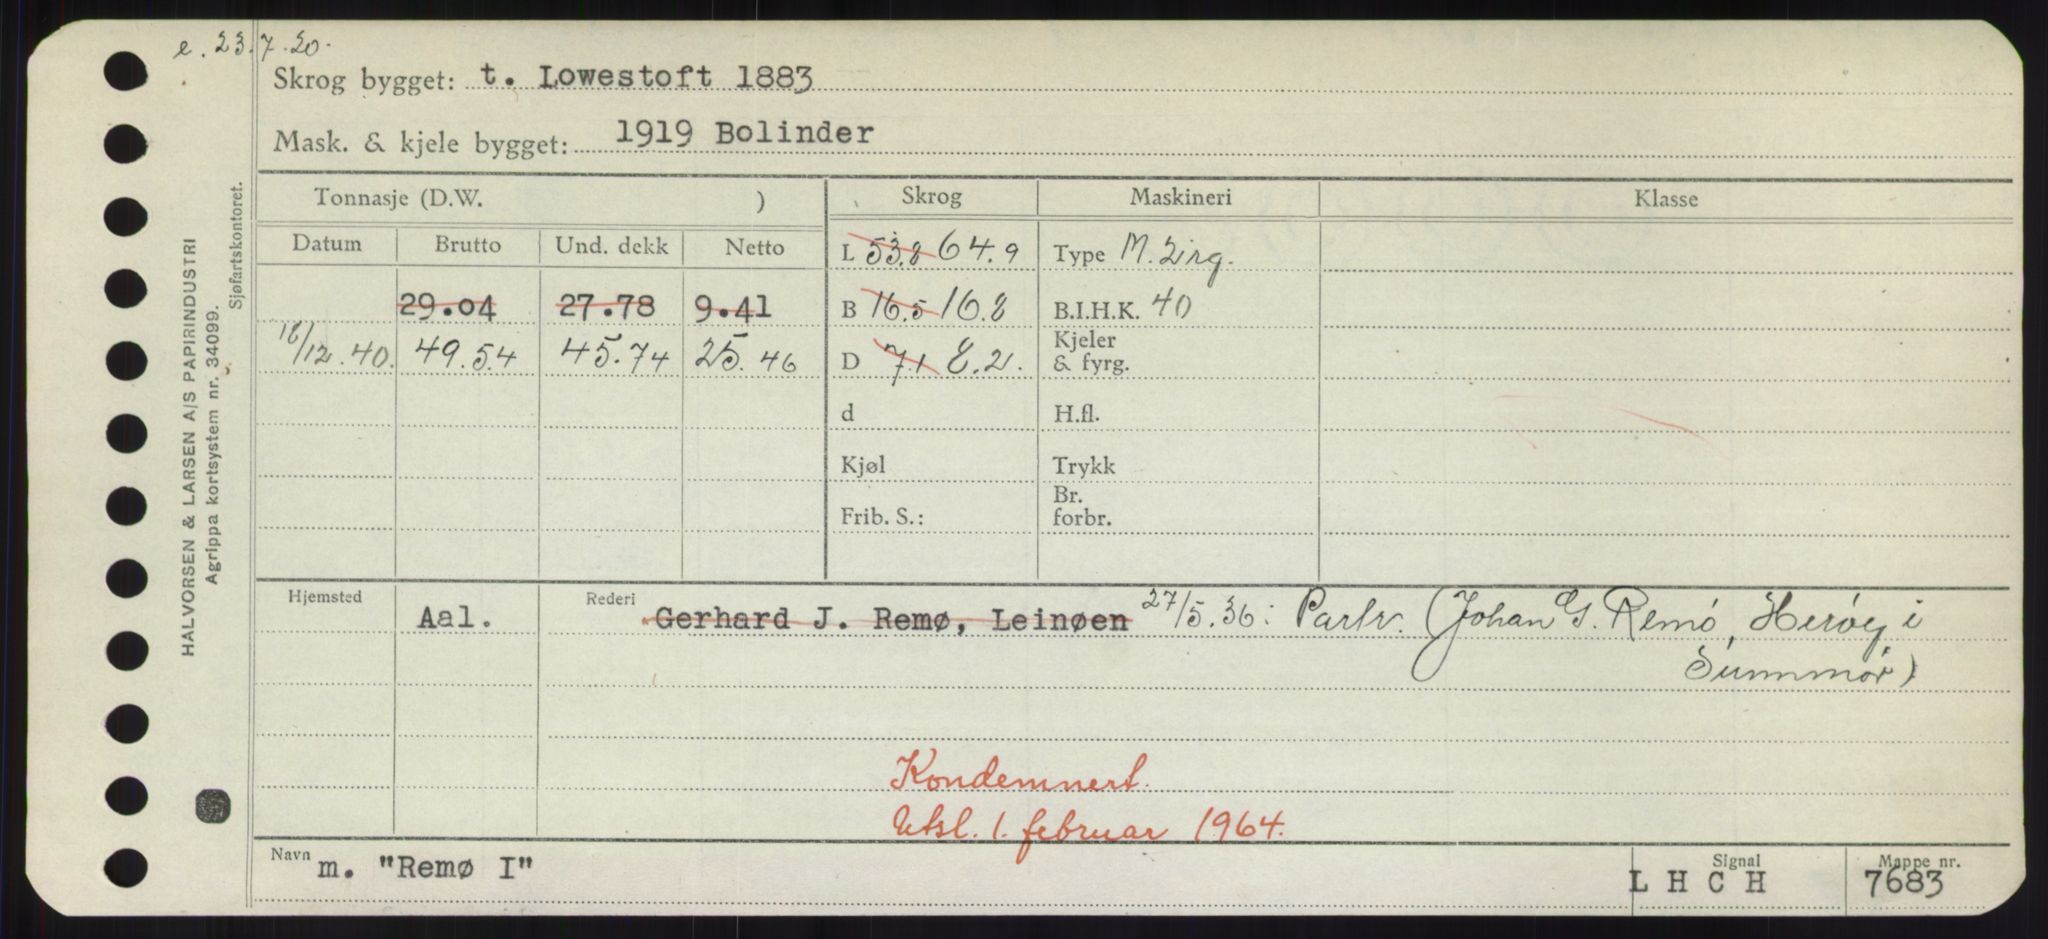 e. 23.7.20.
Skrog bygget: t. Lowestoft 1883
Mask. & kjele bygget: 1919 Bolinder
Tonnasje (D.W. ) Skrog Maskineri Klasse
Datum Brutto Und. dekk Netto L 53.8 64.9 Type M. 2irg.
29.04 27.78 9.41 B 16.5 16.8 B.I.H.K. 40
18/12.40. 49.54 45.74 25.46 D 7.1 8.2. Kjeler & fyrg.
d H.fl.
Kjøl Trykk
Frib. S.: Br. forbr.
Hjemsted Aal. Rederi Gerhard J. Remø, Leinøen 27/5.36: Partr. (Johan G. Remö, Herøy i
Sunnmør)
Kondemnert.
Utsl. 1. februar 1964.
Navn m. "Remø I" Signal L H C H Mappe nr. 7683
HALVORSEN & LARSEN A/S PAPIRINDUSTRI
Agrippa kortsystem nr. 34099.
Sjøfartskontoret.